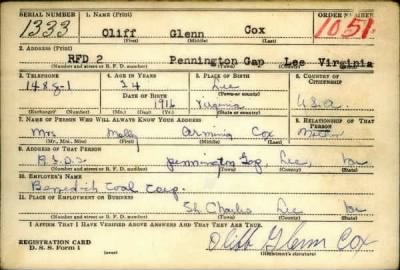 SERIAL NUMBER 1. NAME (Print) ORDER NUMBER
1333 Oliff Glenn Cox 1051
(First) (Middle) (Last)
2. ADDRESS (Print)
RFD 2 Pennington Gap Lee Virginia
(Number and street or R. F. D. number) (Town) (County) (State)
3. TELEPHONE 4. AGE IN YEARS 5. PLACE OF BIRTH 6. COUNTRY OF CITIZENSHIP
148J-1 24 Lee
DATE OF BIRTH (Town or county)
1916 Virginia U.S.A.
(Exchange) (Number) (Mo.) (Day) (Yr.) (State or country)
7. NAME OF PERSON WHO WILL ALWAYS KNOW YOUR ADDRESS 8. RELATIONSHIP OF THAT PERSON
Mrs Cox Mother
(Mr., Mrs., Miss) (First) (Middle) (Last)
9. ADDRESS OF THAT PERSON
Pennington Gap, Lee, Va
(Number and street or R. F. D. number) (Town) (County) (State)
10. EMPLOYER'S NAME
Benedict Coal Corp.
11. PLACE OF EMPLOYMENT OR BUSINESS
St Charles Lee Va
(Number and street or R. F. D. number) (Town) (County) (State)
I AFFIRM THAT I HAVE VERIFIED ABOVE ANSWERS AND THAT THEY ARE TRUE.
REGISTRATION CARD
D. S. S. Form 1 Oliff Glenn Cox
(Registrant's signature)